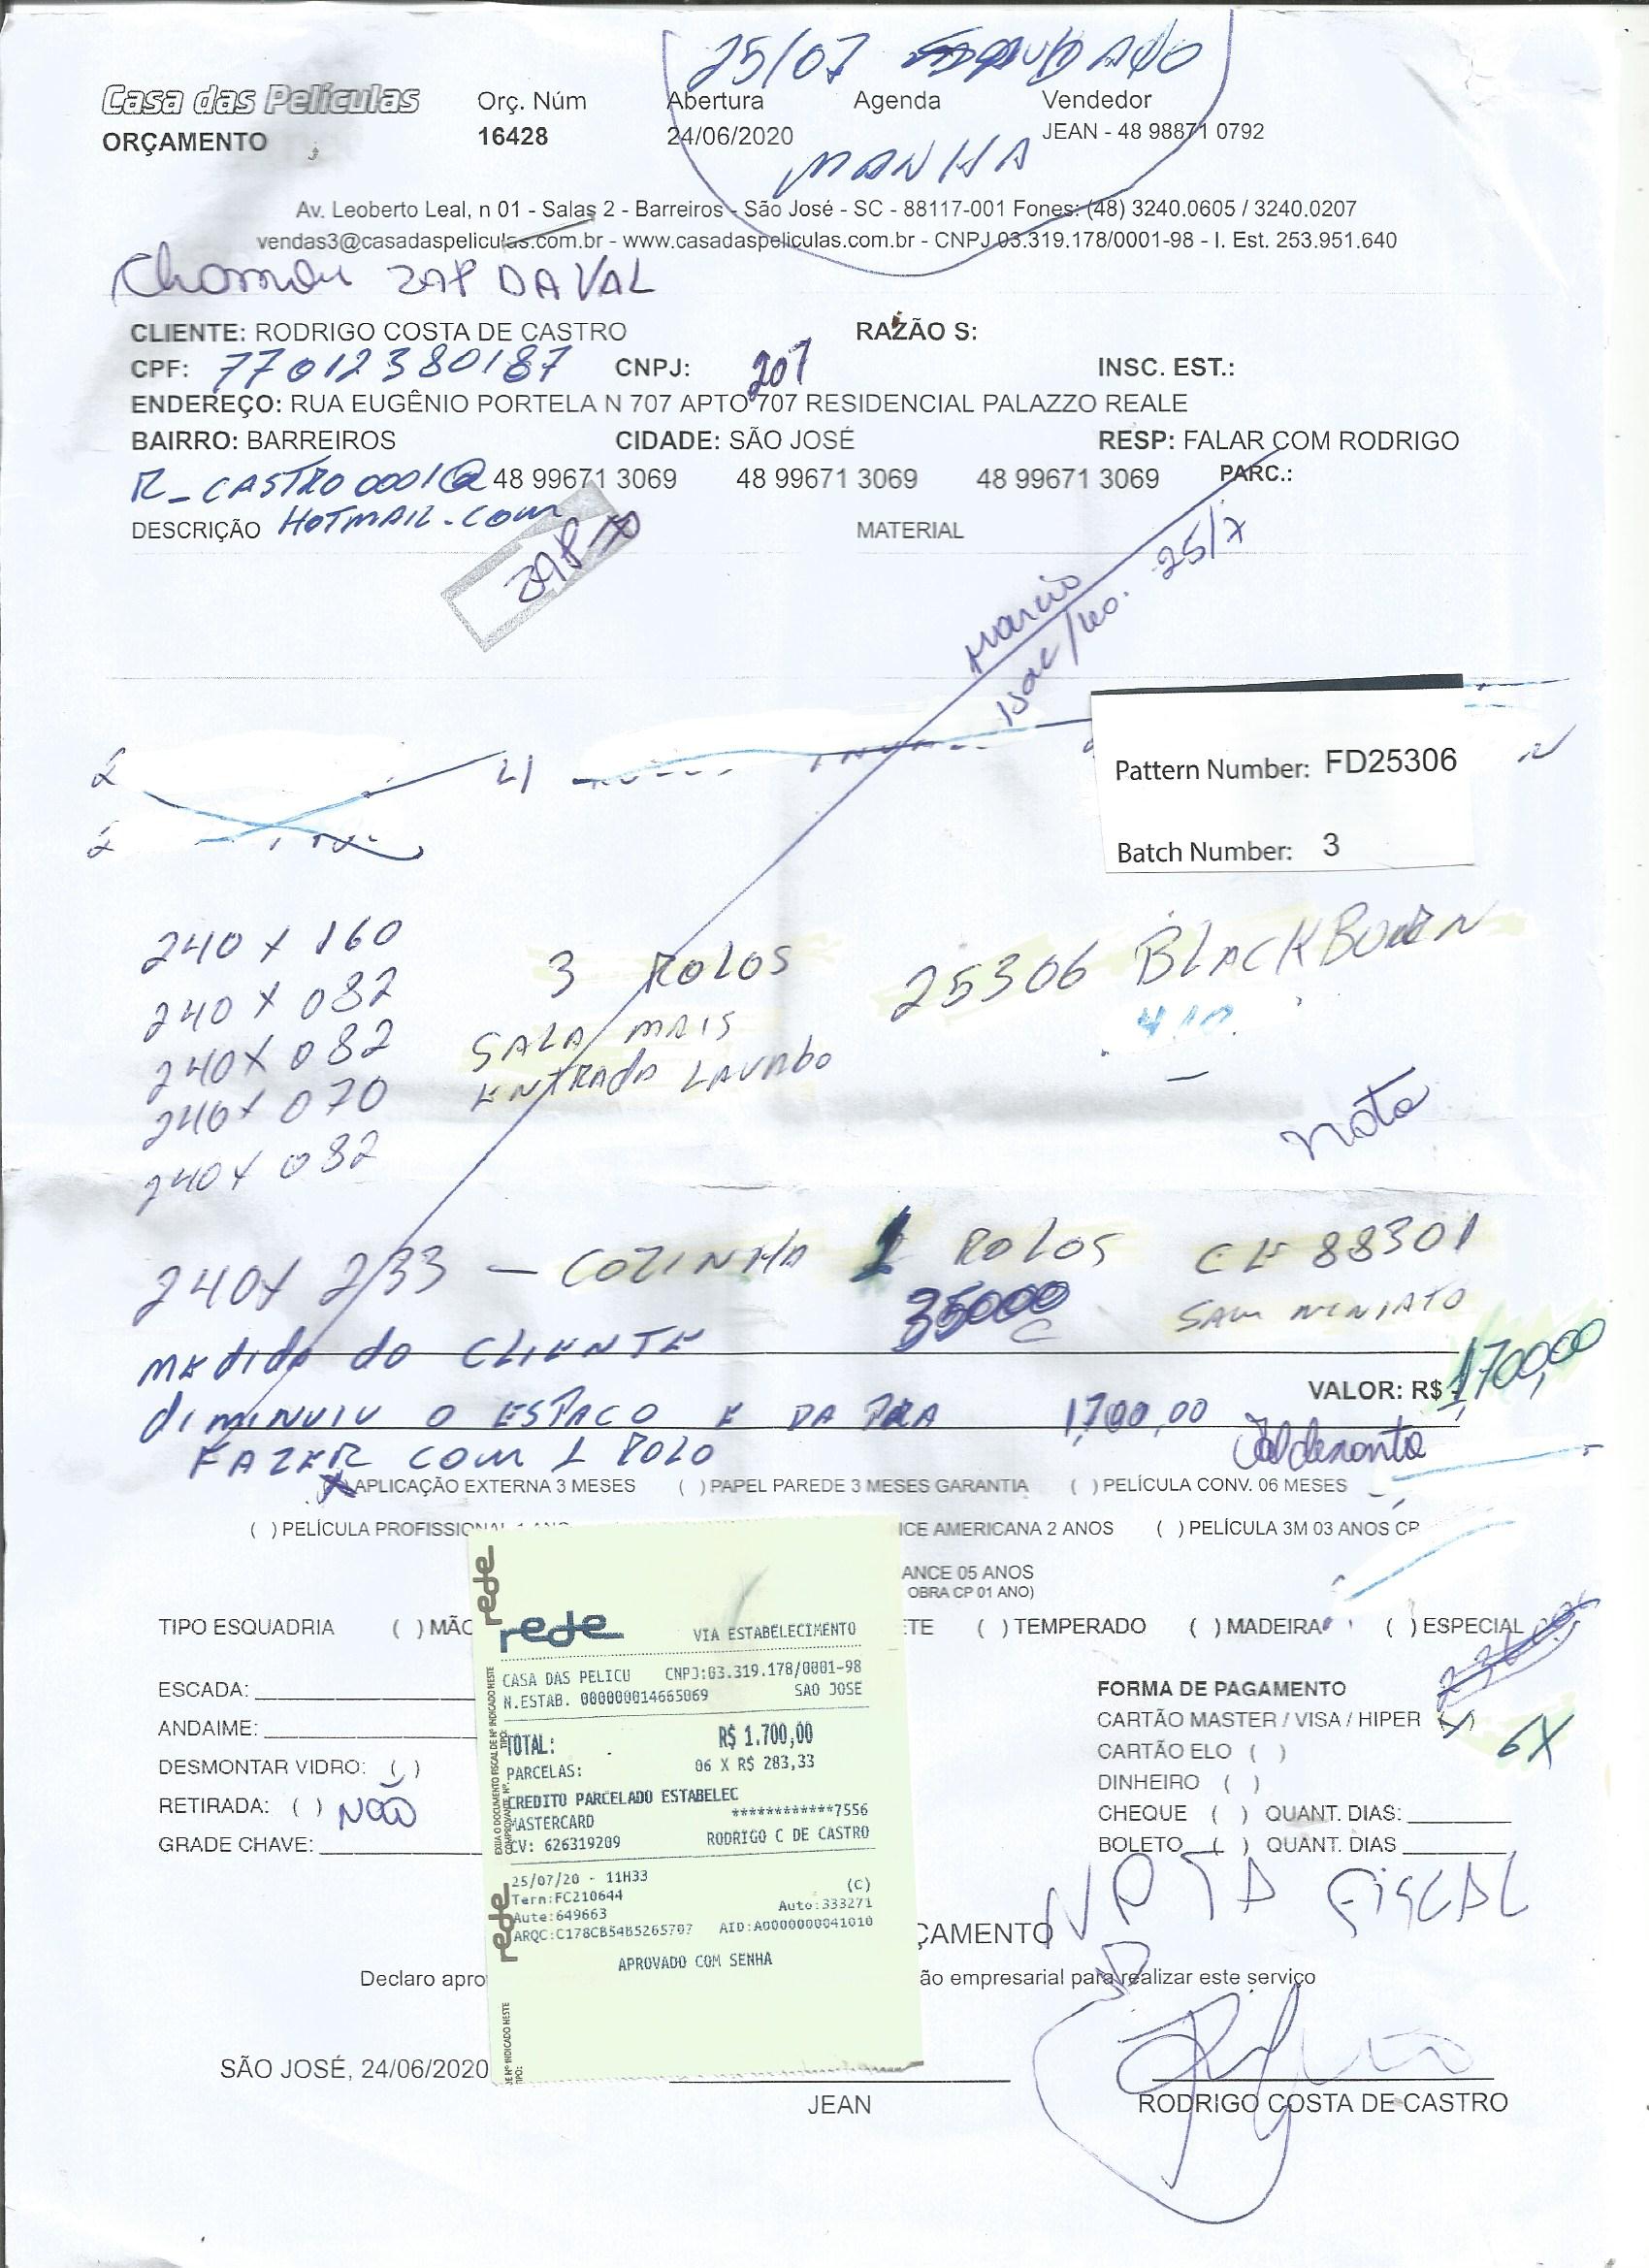 25/07 MANHA
Casa das Películas Orç. Núm Abertura Agenda Vendedor
ORÇAMENTO 16428 24/06/2020 JEAN - 48 98871 0792
Av. Leoberto Leal, n 01 - Salas 2 - Barreiros - São José - SC - 88117-001 Fones: (48) 3240.0605 / 3240.0207
vendas3@casadaspeliculas.com.br - www.casadaspeliculas.com.br - CNPJ 03.319.178/0001-98 - I. Est. 253.951.640
DA VAL
CLIENTE: RODRIGO COSTA DE CASTRO RAZÃO S:
CPF: 77012380187 CNPJ: INSC. EST.:
207
ENDEREÇO: RUA EUGÊNIO PORTELA N 707 APTO 707 RESIDENCIAL PALAZZO REALE
BAIRRO: BARREIROS CIDADE: SÃO JOSÉ RESP: FALAR COM RODRIGO
R_CASTRO0001@ 48 99671 3069 48 99671 3069 48 99671 3069 PARC.:
DESCRIÇÃO HOTMAIL.COM MATERIAL
Marcio
25/7
Pattern Number: FD25306
Batch Number: 3
240 X 160
240 X 082 3 ROLOS 25306 BLACKBOURN
240 X 082 SALA MAIS
240 X 070 ENTRADA LAVABO
240 X 082
nota
240 X 233 — COZINHA 1 ROLOS CE 88301
35000 SAN MINIATO
MEDIDA DO CLIENTE
VALOR: R$ 1700,00
DIMINUIU O ESPACO E DA PRA 1,700,00
FAZER COM 1 ROLO
(X) APLICAÇÃO EXTERNA 3 MESES ( ) PAPEL PAREDE 3 MESES GARANTIA ( ) PELÍCULA CONV. 06 MESES
( ) PELÍCULA PROFISSIONAL 1 ANO ICE AMERICANA 2 ANOS ( ) PELÍCULA 3M 03 ANOS CP
ANCE 05 ANOS
OBRA CP 01 ANO)
TIPO ESQUADRIA ( ) MÃO ETE ( ) TEMPERADO ( ) MADEIRA ( ) ESPECIAL
ESCADA:
ANDAIME:
DESMONTAR VIDRO: ( )
RETIRADA: ( ) NÃO
GRADE CHAVE:
rede
rede VIA ESTABELECIMENTO
CASA DAS PELICU CNPJ:03.319.178/0001-98
N.ESTAB. 000000014665069 SAO JOSE
TOTAL: R$ 1.700,00
PARCELAS: 06 X R$ 283,33
CREDITO PARCELADO ESTABELEC
MASTERCARD ************7556
CV: 626319209 RODRIGO C DE CASTRO
25/07/20 - 11H33 (C)
Term:FC210644 Auto:333271
Aute:649663
ARQC:C178CB54B5265707 AID:A0000000041010
APROVADO COM SENHA
rede
FORMA DE PAGAMENTO
CARTÃO MASTER / VISA / HIPER (X) 6X
CARTÃO ELO ( )
DINHEIRO ( )
CHEQUE ( ) QUANT. DIAS:
BOLETO ( ) QUANT. DIAS
NOTA FISCAL
ÇAMENTO
Declaro apro ão empresarial para realizar este serviço
SÃO JOSÉ, 24/06/2020
JEAN RODRIGO COSTA DE CASTRO